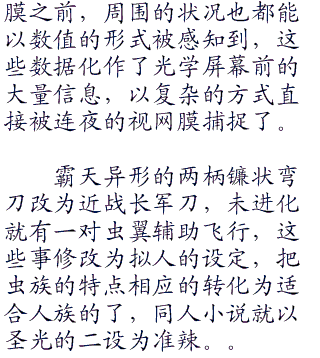 膜之前，周围的状况也都能
以数值的形式被感知到，这
些数据化作了光学屏幕前的
大量信息，以复杂的方式直
接被连夜的视网膜捕捉了。
霸天异形的两柄镰状弯
刀改为近战长军刀，未进化
就有一对虫翼辅助飞行，这
些事修改为拟人的设定，把
虫族的特点相应的转化为适
合人族的了，同人小说就以
圣光的二设为准辣。。